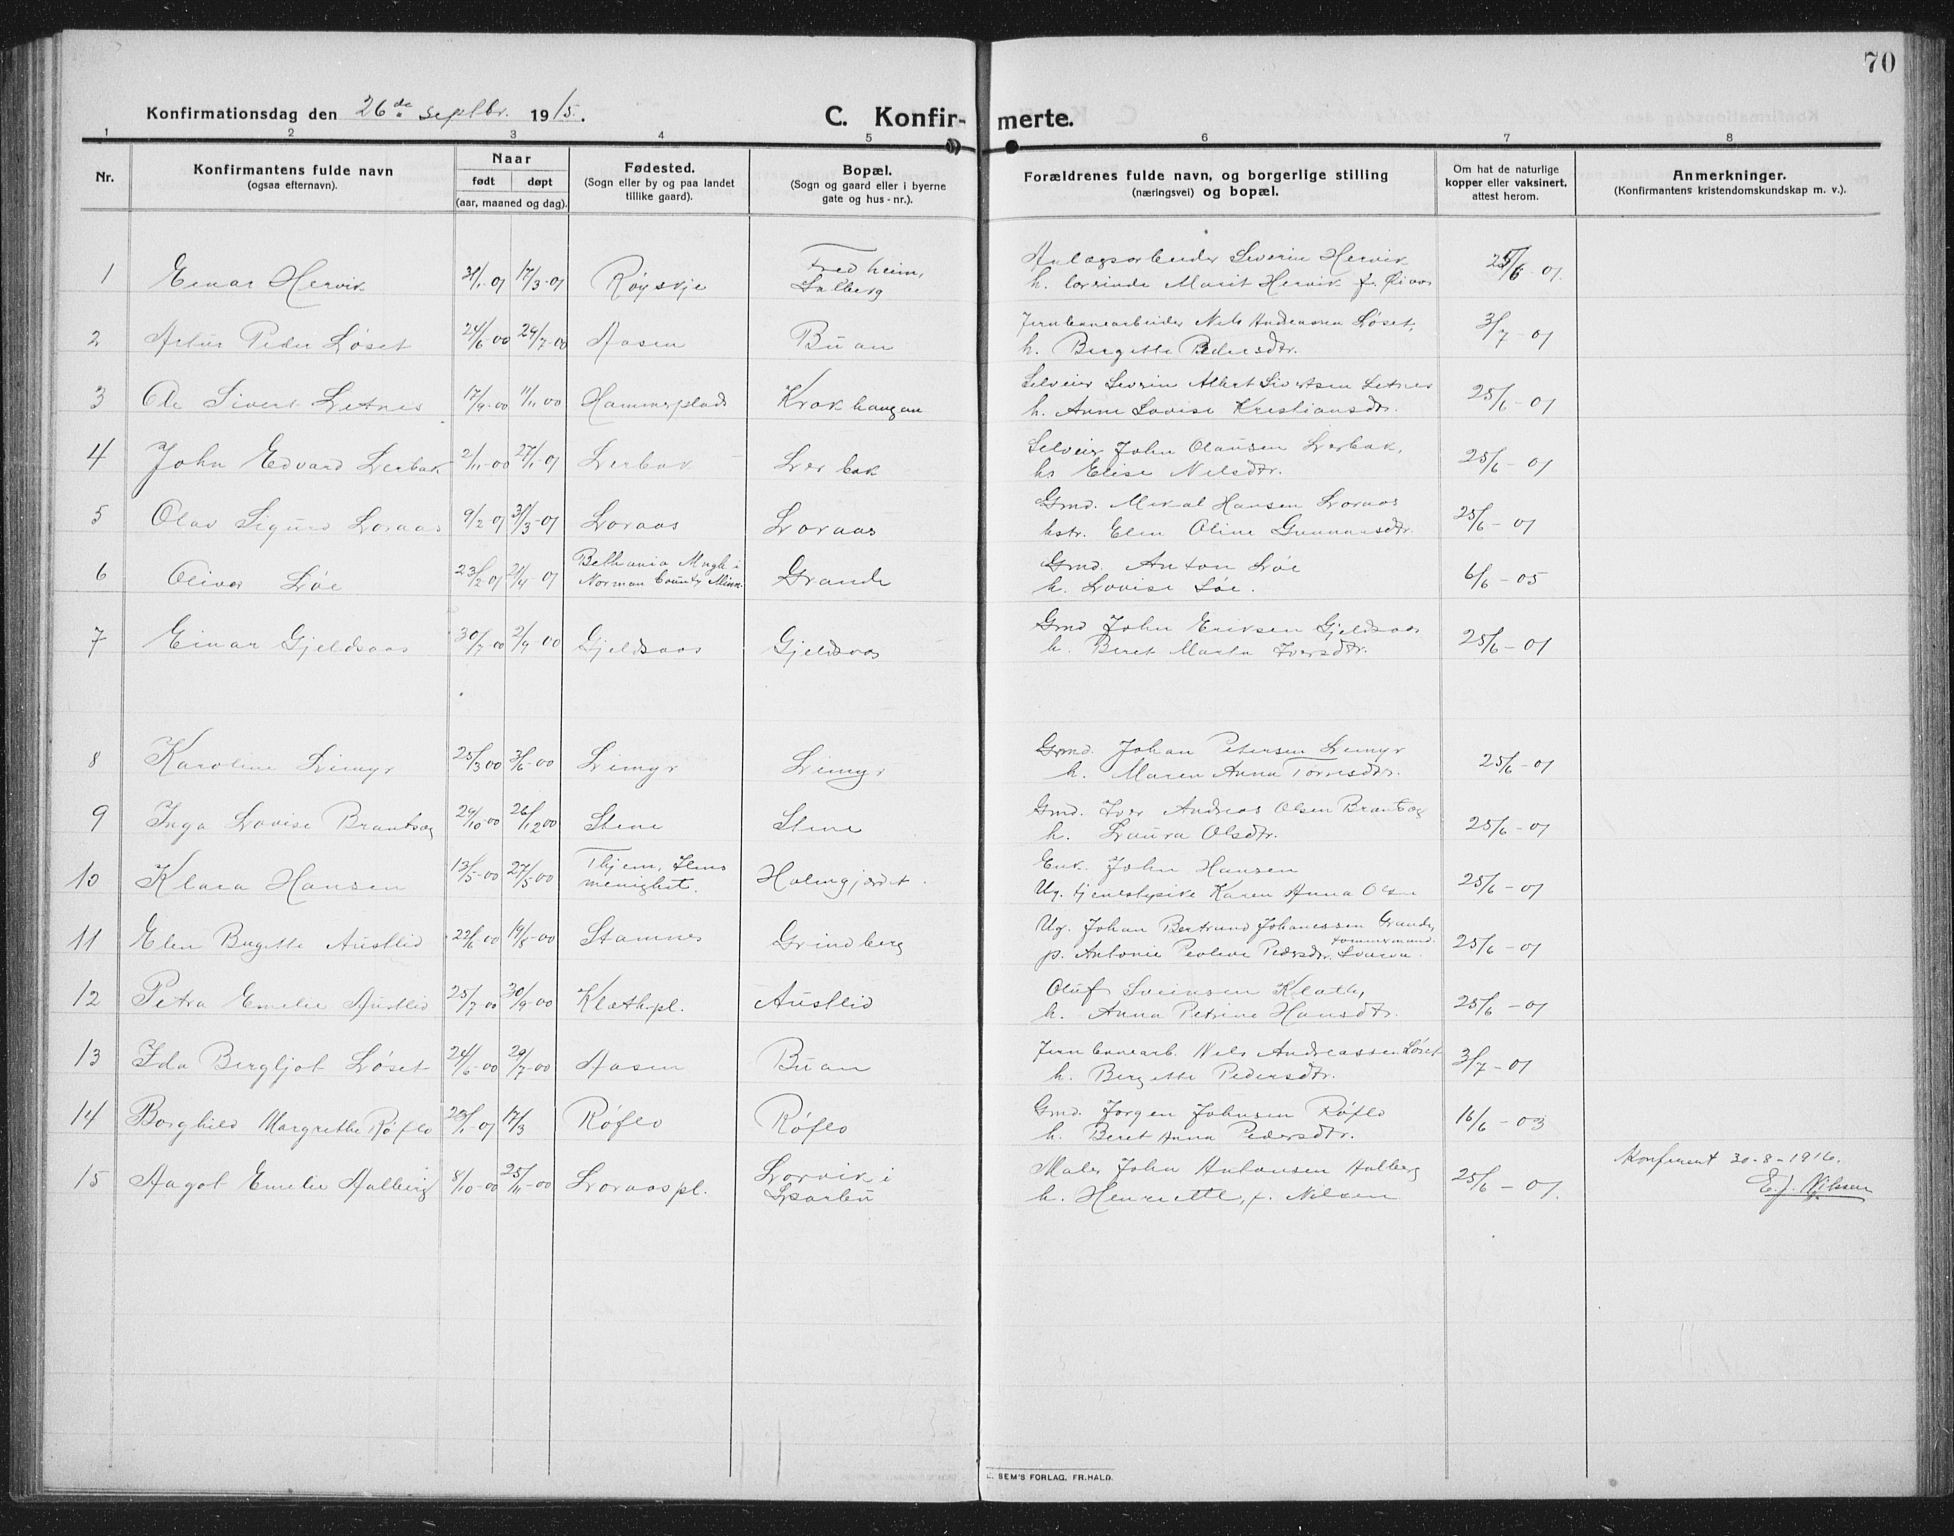 70
Konfirmationsdag den 26de septbr. 1915.
C. Konfirmerte.
1 2 3 4 5 6 7 8
Nr.
Konfirmantens fulde navn
(ogsaa efternavn).
Naar
født døpt
(aar, maaned og dag).
Fødested.
(Sogn eller by og paa landet
tillike gaard).
Bopæl.
(Sogn og gaard eller i byerne
gate og hus-nr.).
Forældrenes fulde navn, og borgerlige stilling
(næringsvei) og bopæl.
Om hat de naturlige
kopper eller vaksinert,
attest herom.
Anmerkninger.
(Konfirmantens kristendomskundskap m. v.).
1 Einar Hervik 31/1-01 17/3-01 Røyskje Fredheim, Salberg Anlægsarbeider Severin Hervik
h. lærerinde Marit Hervik f. 25/6-01.
2 Artur Peder Løset 24/6-00 29/7-00 Aasen Buan Jernbanearbeider Nils Andreassen Løset,
h. Bergitte Pedersdtr. 3/7-01
3 Ole Sivert Letnes 17/9-00 11/11 00 Hammerplads Krokhaugan Selveier Severin Albert Sivertsen Letnes
h. Anne Lovise Kristiansdtr. 25/6-01
4 John Edvard Lerbak 2/11-00 27/1-01 Lerbak Lerbak Selveier John Olausen Lerbak,
h. Elise Nilsdtr. 25/6-01
5 Olav Sigurd Loraas 9/2 01 31/3-01 Loraas Loraas Grmd. Mikal Hansen Loraas
hstr. Elen Oline Gunnarsdtr. 25/6-01
6 Oliver Løe 23/2-01 21/4-01 Bethania Mngh i
Norman County Minn. Grande Grmd. Anton Løe
h. Lovise Løe. 6/6-05
7 Einar Gjeldsaas 30/7-00 2/9-00 Gjeldsaas Gjeldsaas Grmd John Eriksen Gjeldsaas
h. Beret Marta Iversdtr. 25/6-01
8 Karoline Leimyr 25/3 00 3/6-00 Leimyr Leimyr Grmd. Johan Petersen Leimyr
h. Maren Anna Torresdtr. 25/6-01
9 Inga Lovise Brantsæg 29/10-00 26/12 00 Stene Stene Grmd. Iver Andreas Olsen Brantsæg
h. Laura Olsdtr. 25/6-01
10 Klara Hansen 13/5-00 27/5-00 menighet. Holmgjærdet. Enk. John Hansen
Ug. tjenestepike Karen Anna Olsen 25/6-01
11 Elen Bergitte Austlid 22/6-00 19/8-00 Stamnes Grindberg Ug. Johan Bertrand Johanessen Grande, tømmermand.
p. Antonie Peoline Pedersdtr. 25/6-01
12 Petra Emelie Austlid 25/7-00 30/9-00 Klæthpl. Austlid Oluf Sveinsen Klæth,
h. Anna Petrine Hansdtr. 25/6-01
13 Ida Bergljot Løset 24/6-00 29/7-00 Aasen Buan Jernbanearb. Nils Andreassen Løset
h. Bergitte Pedersdtr. 3/7-01
14 Borghild Margrethe Røflo 20/1-01 17/3 Røflo Røflo Grmd. Jørgen Johnsen Røflo
h. Beret Anna Pedersdtr. 16/6-03
15 Aagot Emelie Aalberg 8/10-00 25/11-00 Loraaspl. Lorvik i
Sparbu Maler John Antonsen Aalberg
h. Henriette, f. Nilsen 25/6-01. Konfirmert 30-8-1916.
E. J. Nilssen
E. SEM'S FORLAG, FR.HALD.